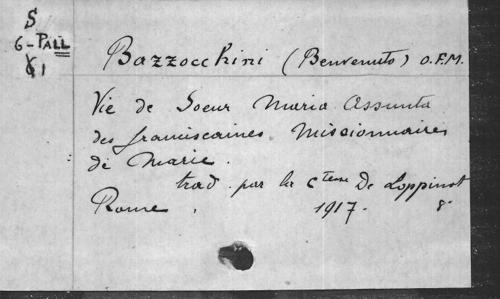 S
6-PALL
61
Bazzocchini (Benvenuto) O.F.M.
Vie de Soeur Maria Assunta
des franciscaines Missionnaires
de Marie.
trad. par la Ctesse De Loppinot
Rome, 1917. 8°